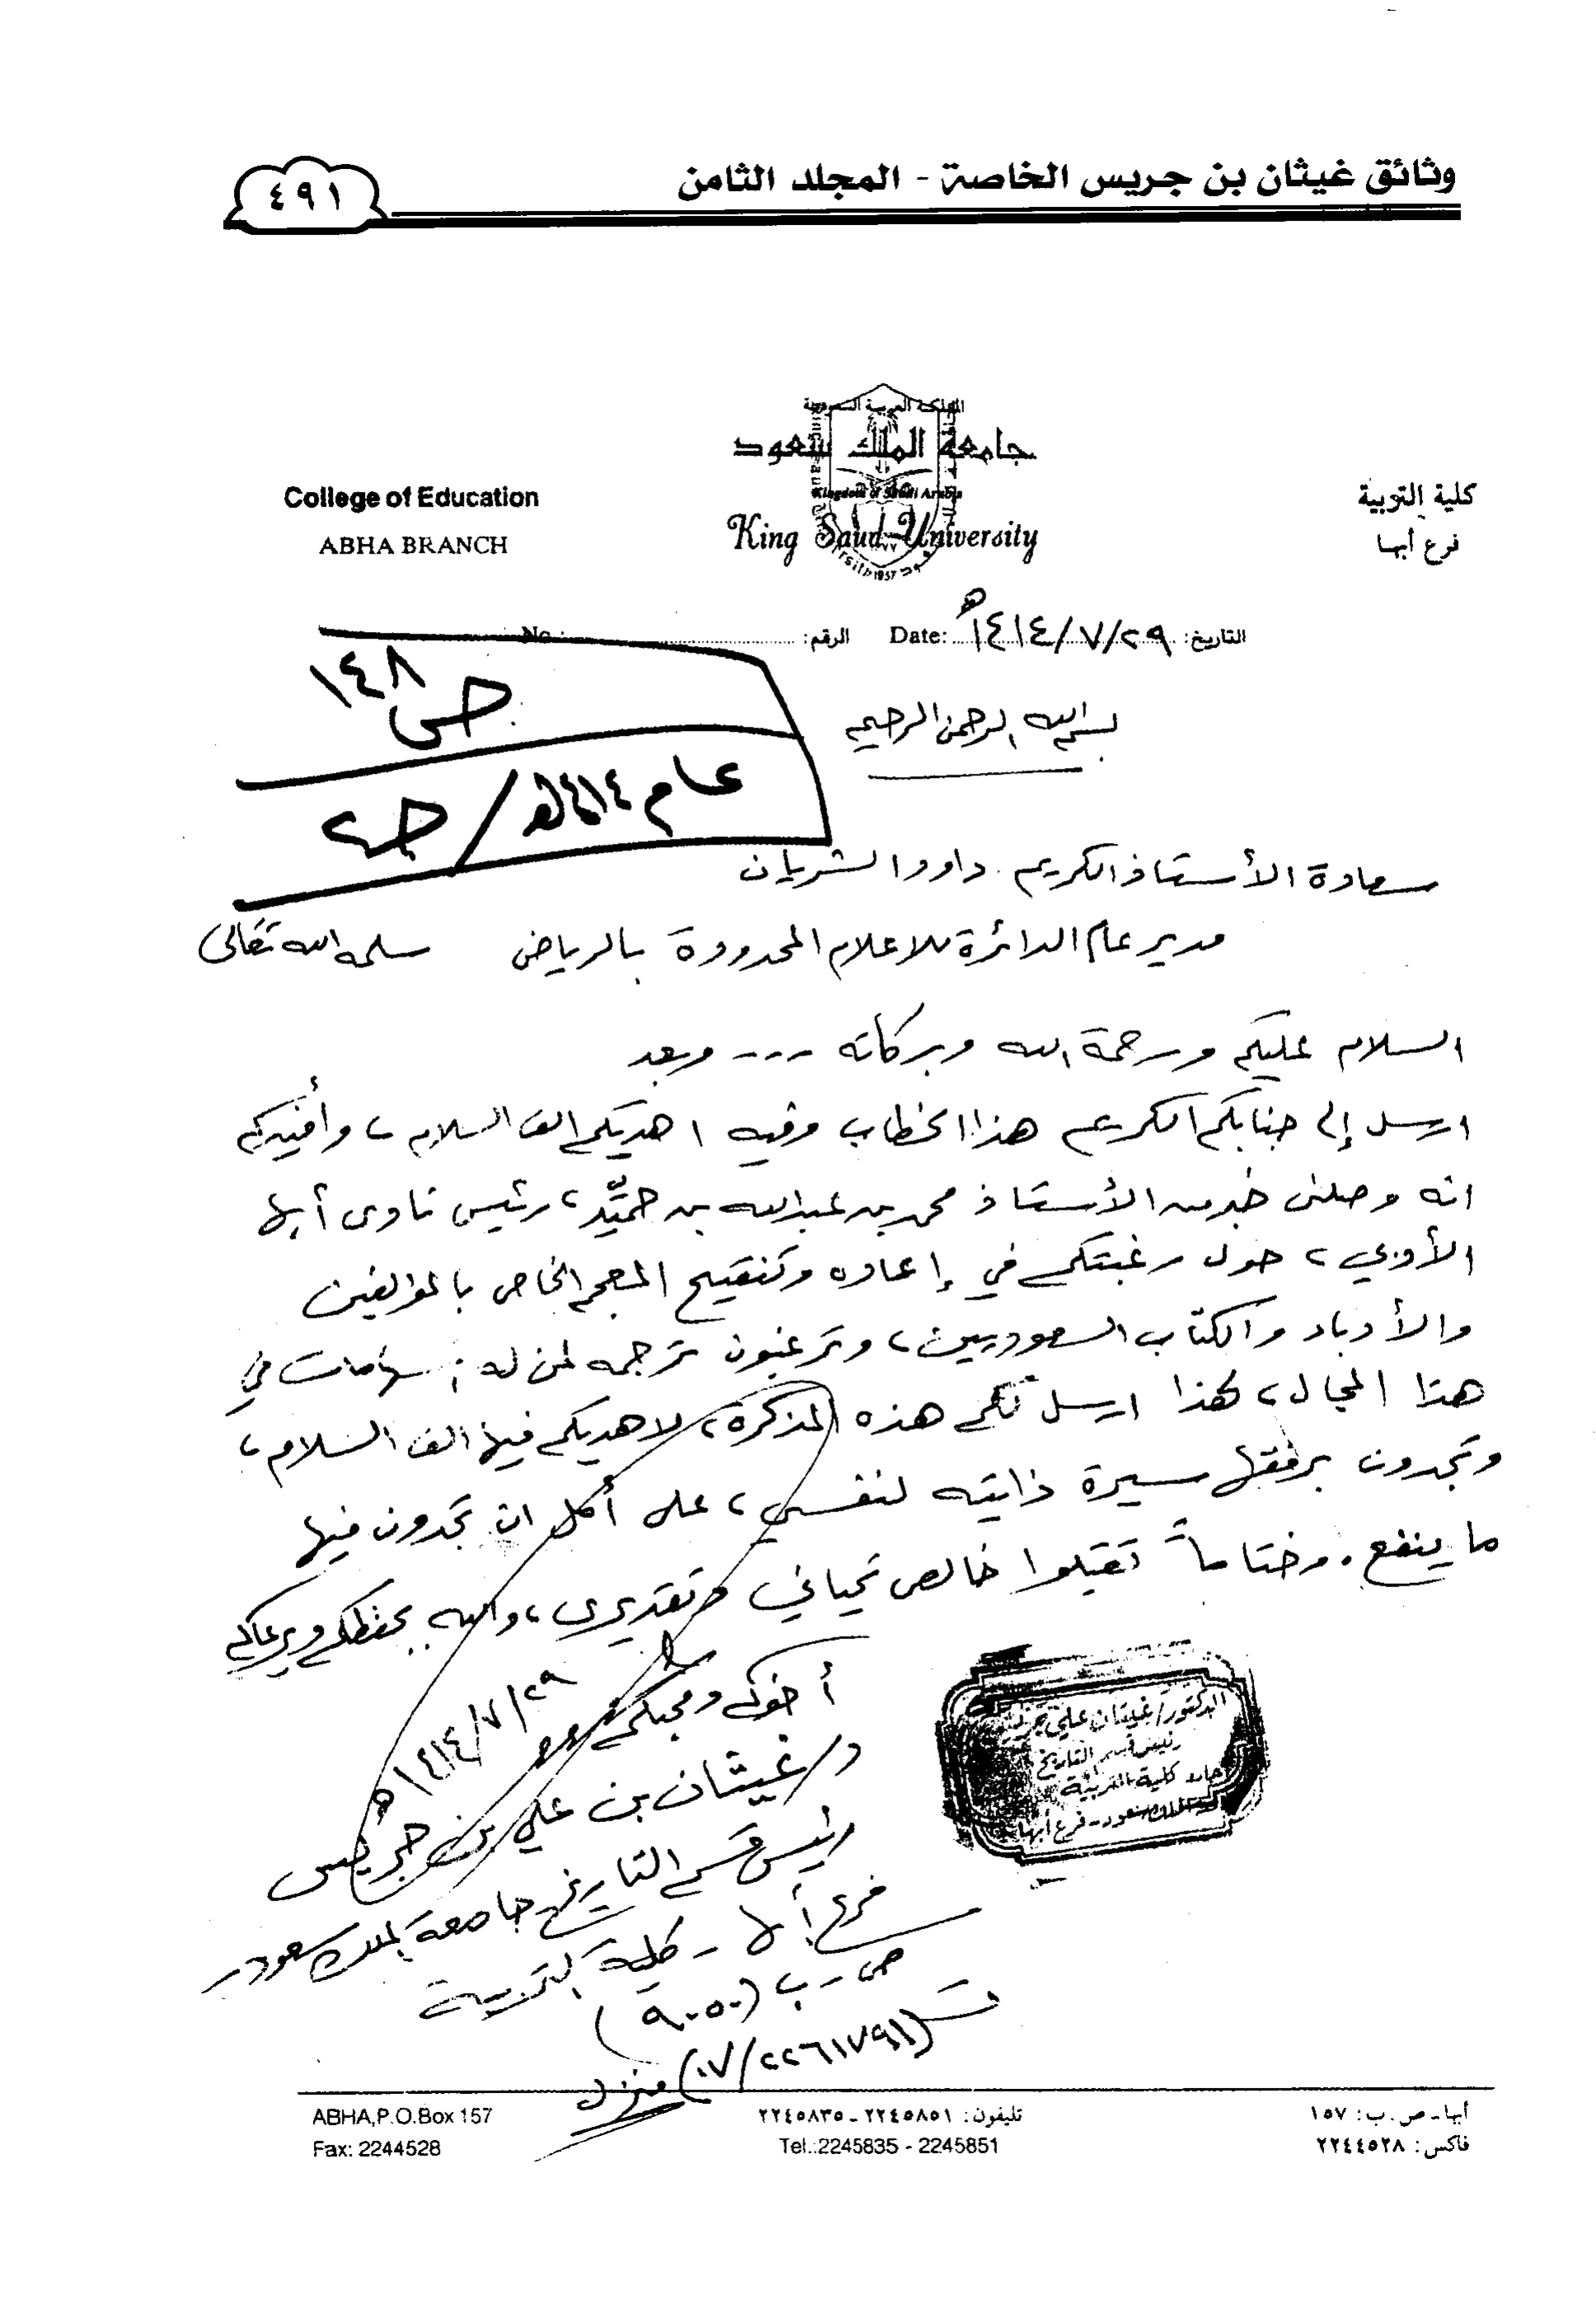 وثائق غيثان بن جريس الخاصة - المجلد الثامن
٤٩١
المملكة العربية السعودية
جامعة الملك سعود
Kingdom of Saudi Arabia
King Saud University
1957
كلية التربية
فرع أبها
College of Education
ABHA BRANCH
التاريخ: ١٤١٤/٧/٢٩هـ Date: الرقم: No.:
ص ١٤٨
عام ١٤١٤هـ / جـ٢
بسم الله الرحمن الرحيم
سعادة الأستاذ الكريم. داود الشريان
مدير عام الدائرة للاعلام المحدودة بالرياض سلمه الله تعالى
السلام عليكم ورحمة الله وبركاته --- وبعد
ارسل إلى جنابكم الكريم هذا الخطاب وفيه اهديكم الف السلام، وأفيدكم
انه وصلني خبر من الأستاذ محمد بن عبدالله بن حميّد، رئيس نادى أبها
الأدبي، حول رغبتكم في إعاده وتنقيح المعجم الخاص بالمؤلفين
والأدباء والكتاب السعوديين، وترغبون ترجمه لمن له إسهامات في
هذا المجال، لهذا ارسل لكم هذه المذكرة، لاهديكم فيها الف السلام،
وتجدون برفقها سيرة ذاتيه لنفسي، على أمل ان تجدون فيها
ما ينفع. وختاماً تقبلوا خالص تحياتي وتقديري، والله يحفظكم ويرعاكم
أخوكم ومحبكم
١٤١٤/٧/٢٩هـ
د/ غيثان بن علي بن جريس
رئيس قسم التاريخ - جامعة الملك سعود -
فرع أبها - كلية التربية
ص - ب (٩٠٥٠)
ت (٠٧/٢٢٦١٧٩١) منزل
الدكتور/ غيثان علي جريس
رئيس قسم التاريخ
كلية التربية
الملك سعود - فرع ابها
أبها - ص. ب: ١٥٧
فاكس: ٢٢٤٤٥٢٨
تليفون: ٢٢٤٥٨٥١ - ٢٢٤٥٨٣٥
Tel.:2245835 - 2245851
ABHA,P.O.Box 157
Fax: 2244528